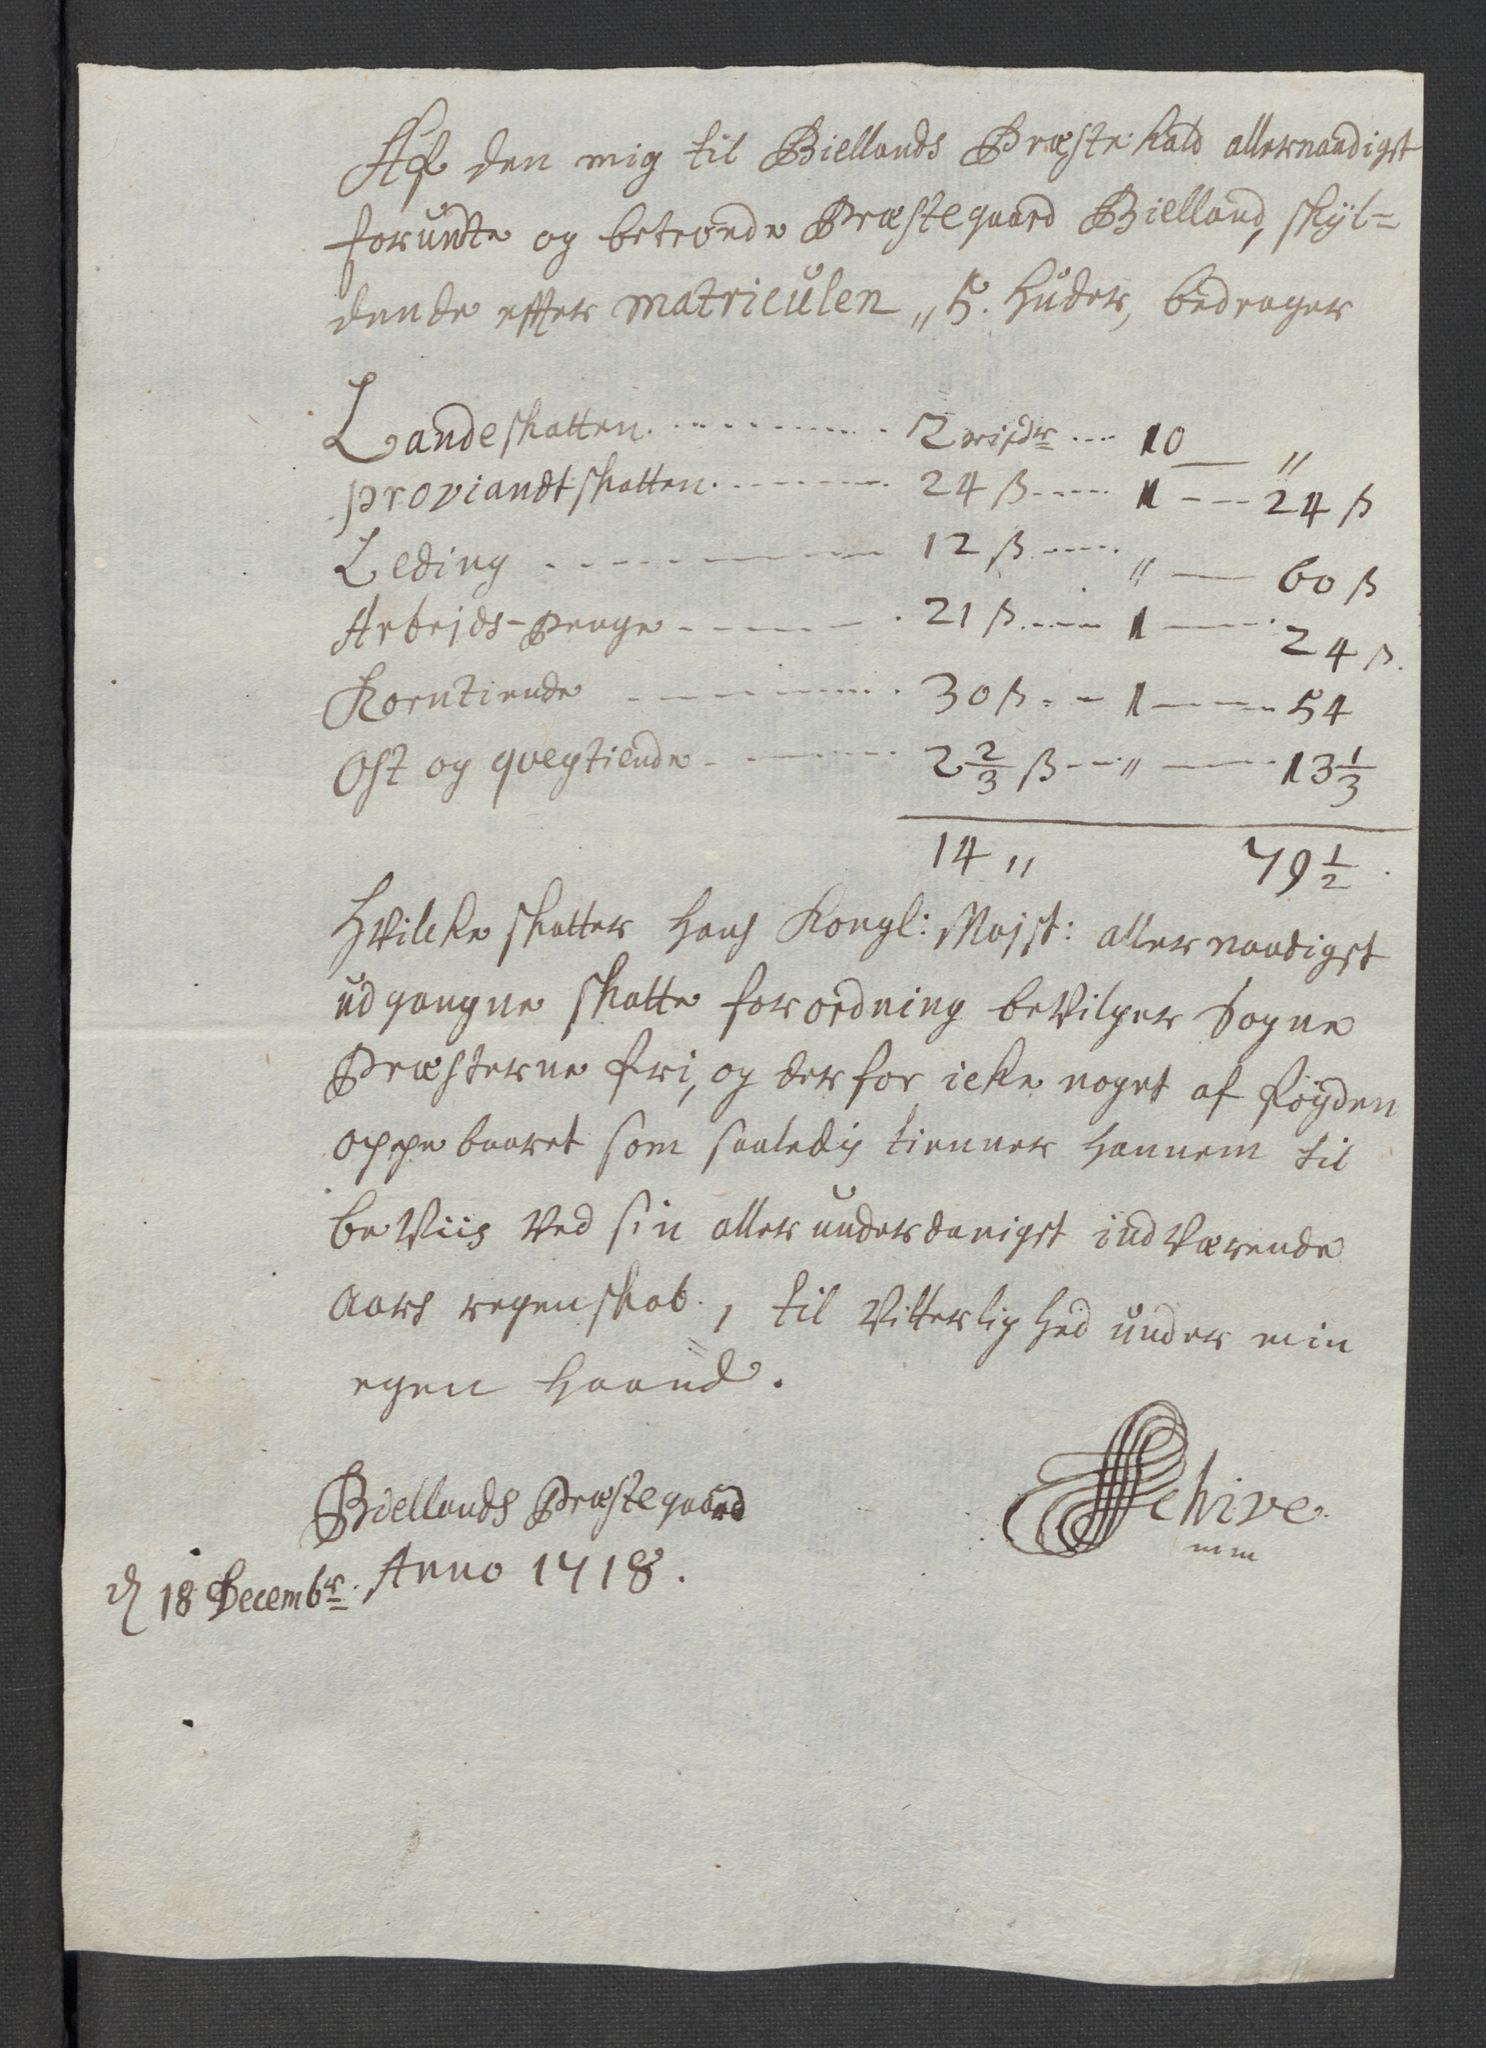 Af den mig til Biellands Præste kald allernaadigst
forundte og betroede Præstegaard Bielland, skÿl=
dende effter matriculen „ 5. Huder, bedrager
Landeskatten . . . . . . 2 rixdr .... 10 — "
proviandtskatten . . . . . . 24 ß .... 1 --- 24 ß
Leding . . . . . . 12 ß .... " — 60 ß
Arbejds-Penge . . . . . . 21 ß .... 1 — 24 ß.
Korntiende . . . . . . 30 ß - - 1 --- 54
Ost og qvegtiende . . . . . . 2 2/3 ß --- " — 13 1/3
14 " 79 1/2
Hvilcke skatter Hans Kongl: Majst: allernaadigst
udgangne skatte forordning bevilger Sogne
Præsterne fri, og derfor icke noget af fogden
oppebaaret som saaledis tienner hannem til
beviis ved sin allerunderdanigst indværende
Aars regenskab., til vitterlighed under min
egen Haand.
Biellands Præstegaard
d 18 Decembr. Anno 1718.
Schive
mm